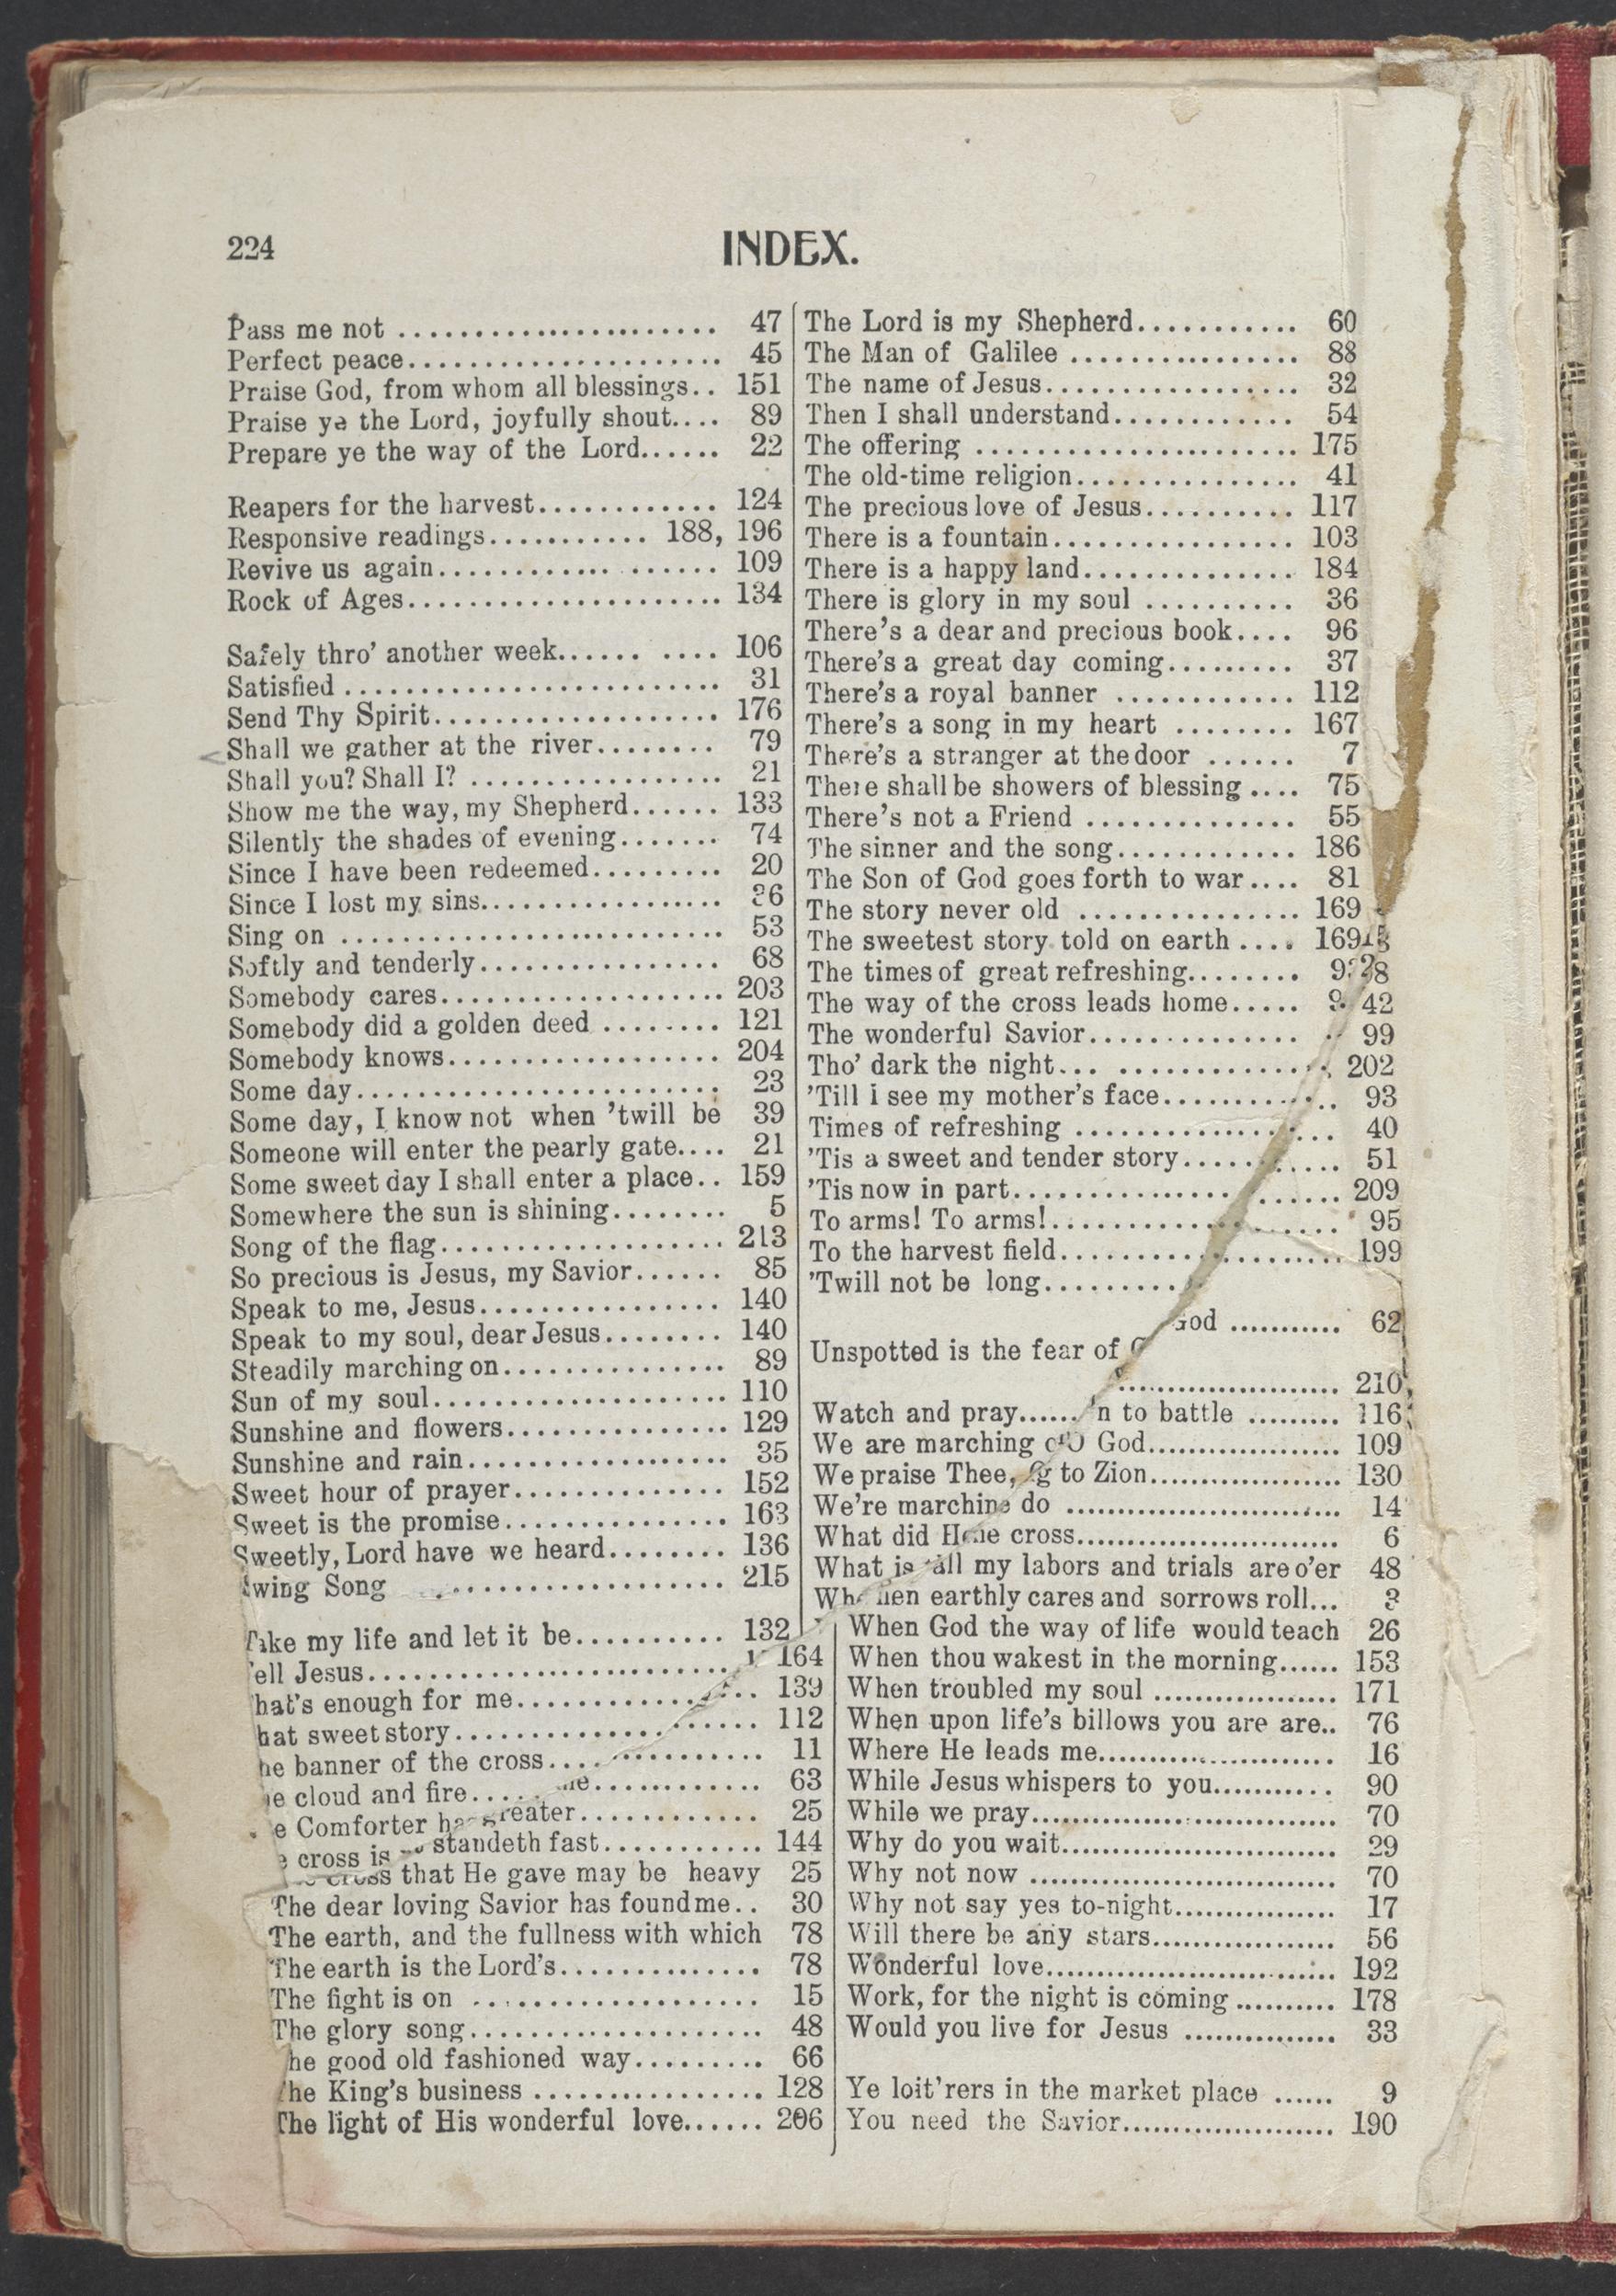 224
INDEX.
Pass me not ..................... 47
Perfect peace..................... 45
Praise God, from whom all blessings.. 151
Praise ye the Lord, joyfully shout.... 89
Prepare ye the way of the Lord...... 22
Reapers for the harvest............ 124
Responsive readings............ 188, 196
Revive us again............. ...... 109
Rock of Ages..................... 134
Safely thro' another week...... .... 106
Satisfied ......................... 31
Send Thy Spirit................... 176
Shall we gather at the river........ 79
Shall you? Shall I? ................. 21
Show me the way, my Shepherd...... 133
Silently the shades of evening....... 74
Since I have been redeemed......... 20
Since I lost my sins.................. 36
Sing on .......................... 53
Softly and tenderly................. 68
Somebody cares................... 203
Somebody did a golden deed ........ 121
Somebody knows.................. 204
Some day........................ 23
Some day, I know not when 'twill be 39
Someone will enter the pearly gate.... 21
Some sweet day I shall enter a place.. 159
Somewhere the sun is shining........ 5
Song of the flag................... 213
So precious is Jesus, my Savior...... 85
Speak to me, Jesus................ 140
Speak to my soul, dear Jesus........ 140
Steadily marching on............... 89
Sun of my soul.................... 110
Sunshine and flowers............... 129
Sunshine and rain................. 35
Sweet hour of prayer.............. 152
Sweet is the promise............... 163
Sweetly, Lord have we heard........ 136
wing Song .................... 215
Take my life and let it be.......... 132
ell Jesus......................... 164
hat's enough for me................ 139
hat sweet story.................... 112
he banner of the cross.............. 11
e cloud and fire................. 63
e Comforter ha greater............ 25
cross is standeth fast........... 144
cross that He gave may be heavy 25
The dear loving Savior has found me.. 30
The earth, and the fullness with which 78
The earth is the Lord's............. 78
The fight is on ................... 15
The glory song.................... 48
he good old fashioned way......... 66
he King's business ................ 128
The light of His wonderful love...... 206
The Lord is my Shepherd........... 60
The Man of Galilee ............... 88
The name of Jesus................. 32
Then I shall understand............ 54
The offering ...................... 175
The old-time religion............... 41
The precious love of Jesus.......... 117
There is a fountain................ 103
There is a happy land.............. 184
There is glory in my soul .......... 36
There's a dear and precious book.... 96
There's a great day coming......... 37
There's a royal banner ............ 112
There's a song in my heart ........ 167
There's a stranger at the door ...... 7
There shall be showers of blessing .... 75
There's not a Friend .............. 55
The sinner and the song............ 186
The Son of God goes forth to war.... 81
The story never old ............... 169
The sweetest story told on earth .... 169
The times of great refreshing........ 9 28
The way of the cross leads home..... 9 42
The wonderful Savior.............. 99
Tho' dark the night... .............. 202
'Till I see my mother's face........... 93
Times of refreshing ................. 40
'Tis a sweet and tender story.......... 51
'Tis now in part..................... 209
To arms! To arms!................... 95
To the harvest field................... 199
'Twill not be long..........
God ........... 62
Unspotted is the fear of
..................... 210
Watch and pray...... n to battle ......... 116
We are marching O God................... 109
We praise Thee, g to Zion................... 130
We're marching do .......................... 14
What did He he cross.......................... 6
What is all my labors and trials are o'er 48
Wh hen earthly cares and sorrows roll... 3
When God the way of life would teach 26
When thou wakest in the morning...... 153
When troubled my soul .................. 171
When upon life's billows you are are.. 76
Where He leads me....................... 16
While Jesus whispers to you............ 90
While we pray.............................. 70
Why do you wait........................... 29
Why not now .............................. 70
Why not say yes to-night................ 17
Will there be any stars.................. 56
Wonderful love............................ 192
Work, for the night is coming .......... 178
Would you live for Jesus ............... 33
Ye loit'rers in the market place ...... 9
You need the Savior..................... 190